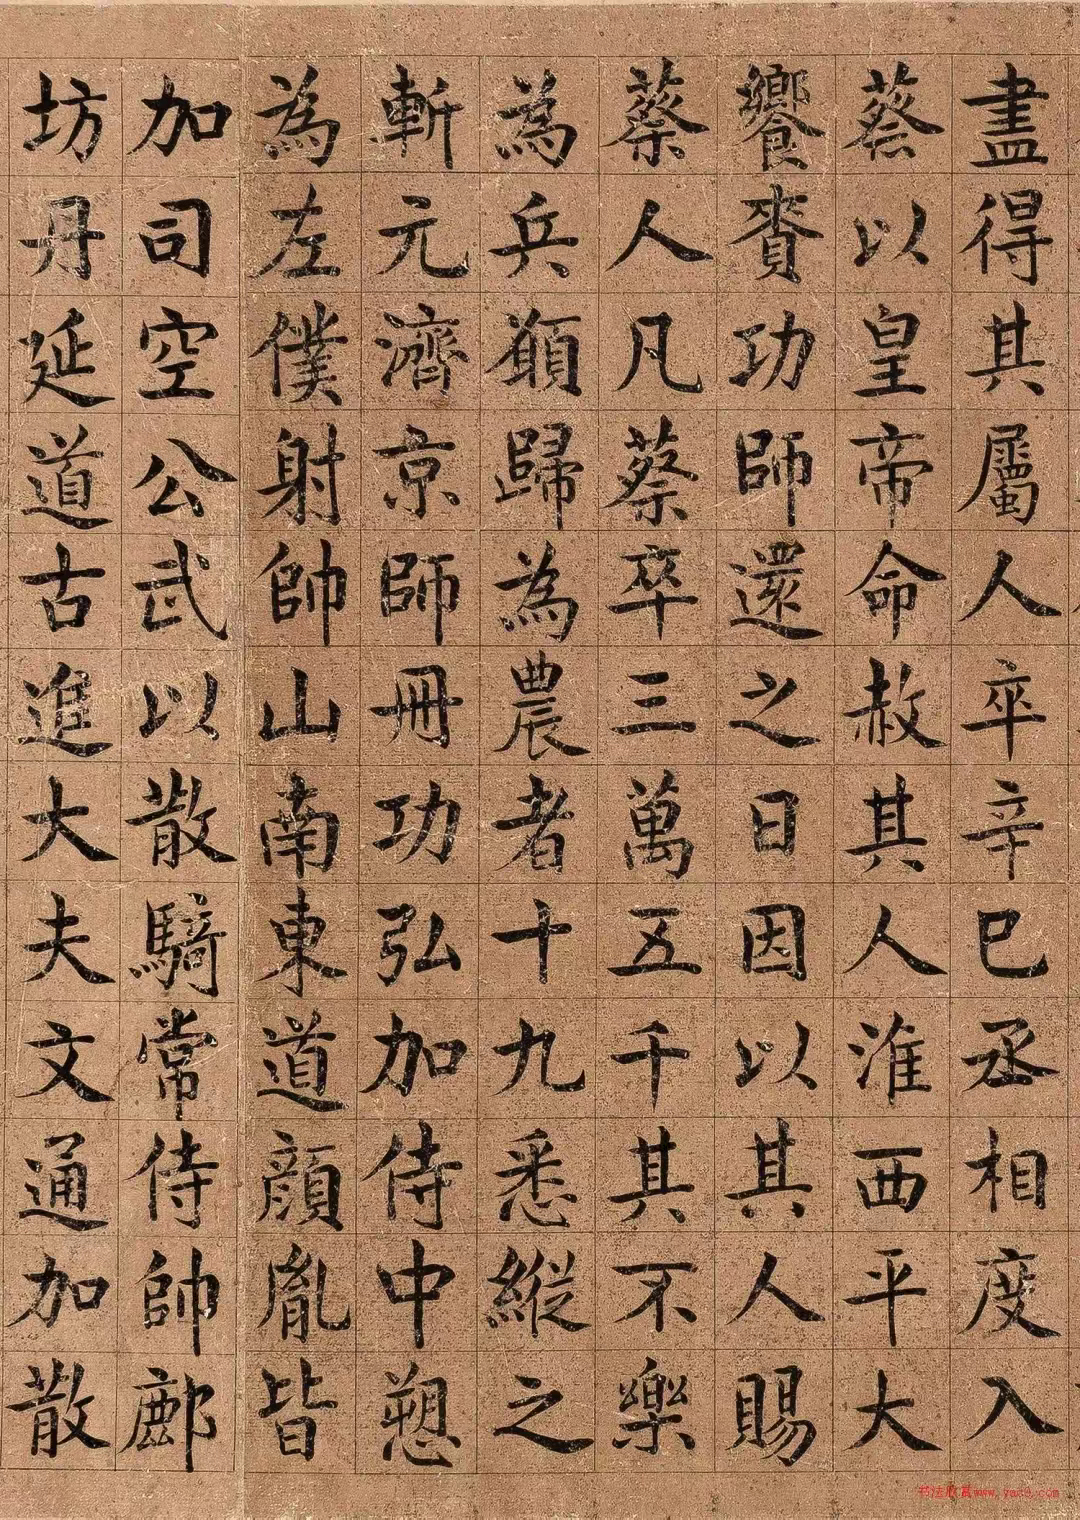 盡得其屬人卒辛巳丞相度入
蔡以皇帝命赦其人淮西平大
饗賚功師還之日因以其人賜
蔡人凡蔡卒三萬五千其不樂
為兵願歸為農者十九悉縱之
斬元濟京師冊功弘加侍中愬
為左僕射帥山南東道顏胤皆
加司空公武以散騎常侍帥鄜
坊丹延道古進大夫文通加散
书法欣赏www.yac8.com